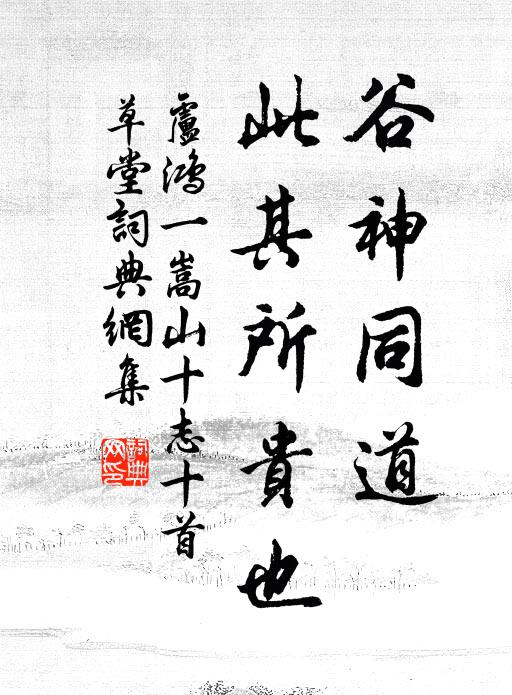 谷神同道
此其所貴也
盧鴻一嵩山十志十首
草堂詞典網集
詞典網印